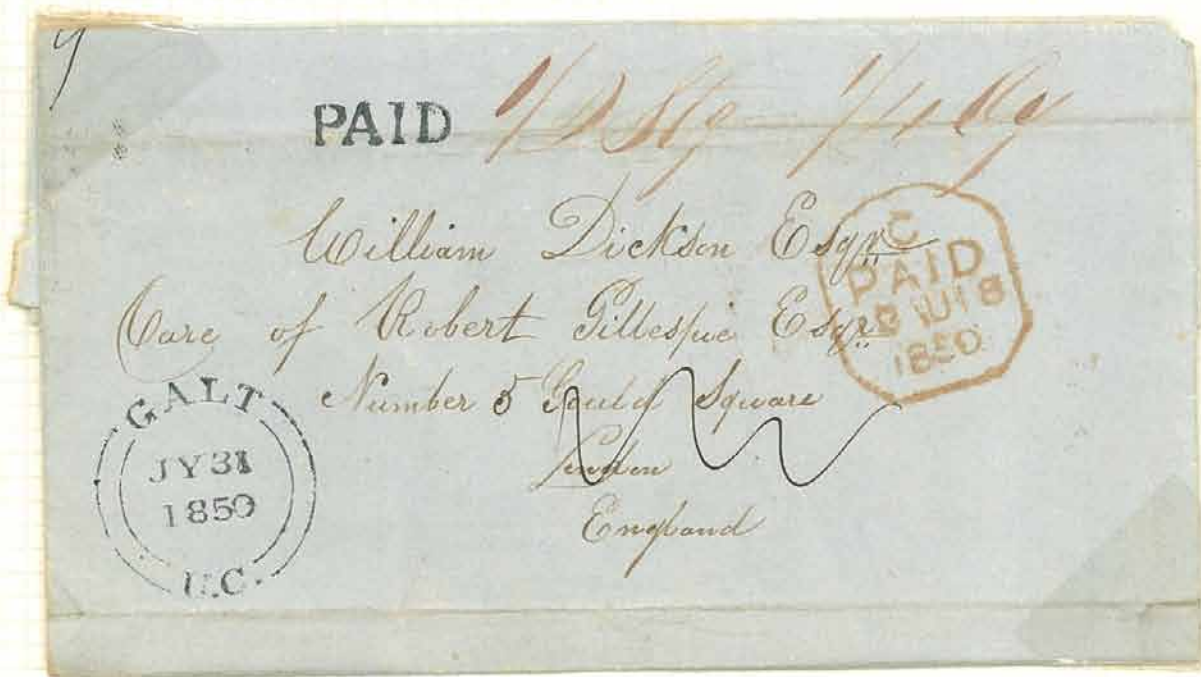 PAID 1/2 Stg 1/4 Cy
William Dickson Esqr
Care of Robert Gillespie Esqr
Number 5 Square
London
England
C
PAID
1850
GALT
JY 31
1850
U.C.